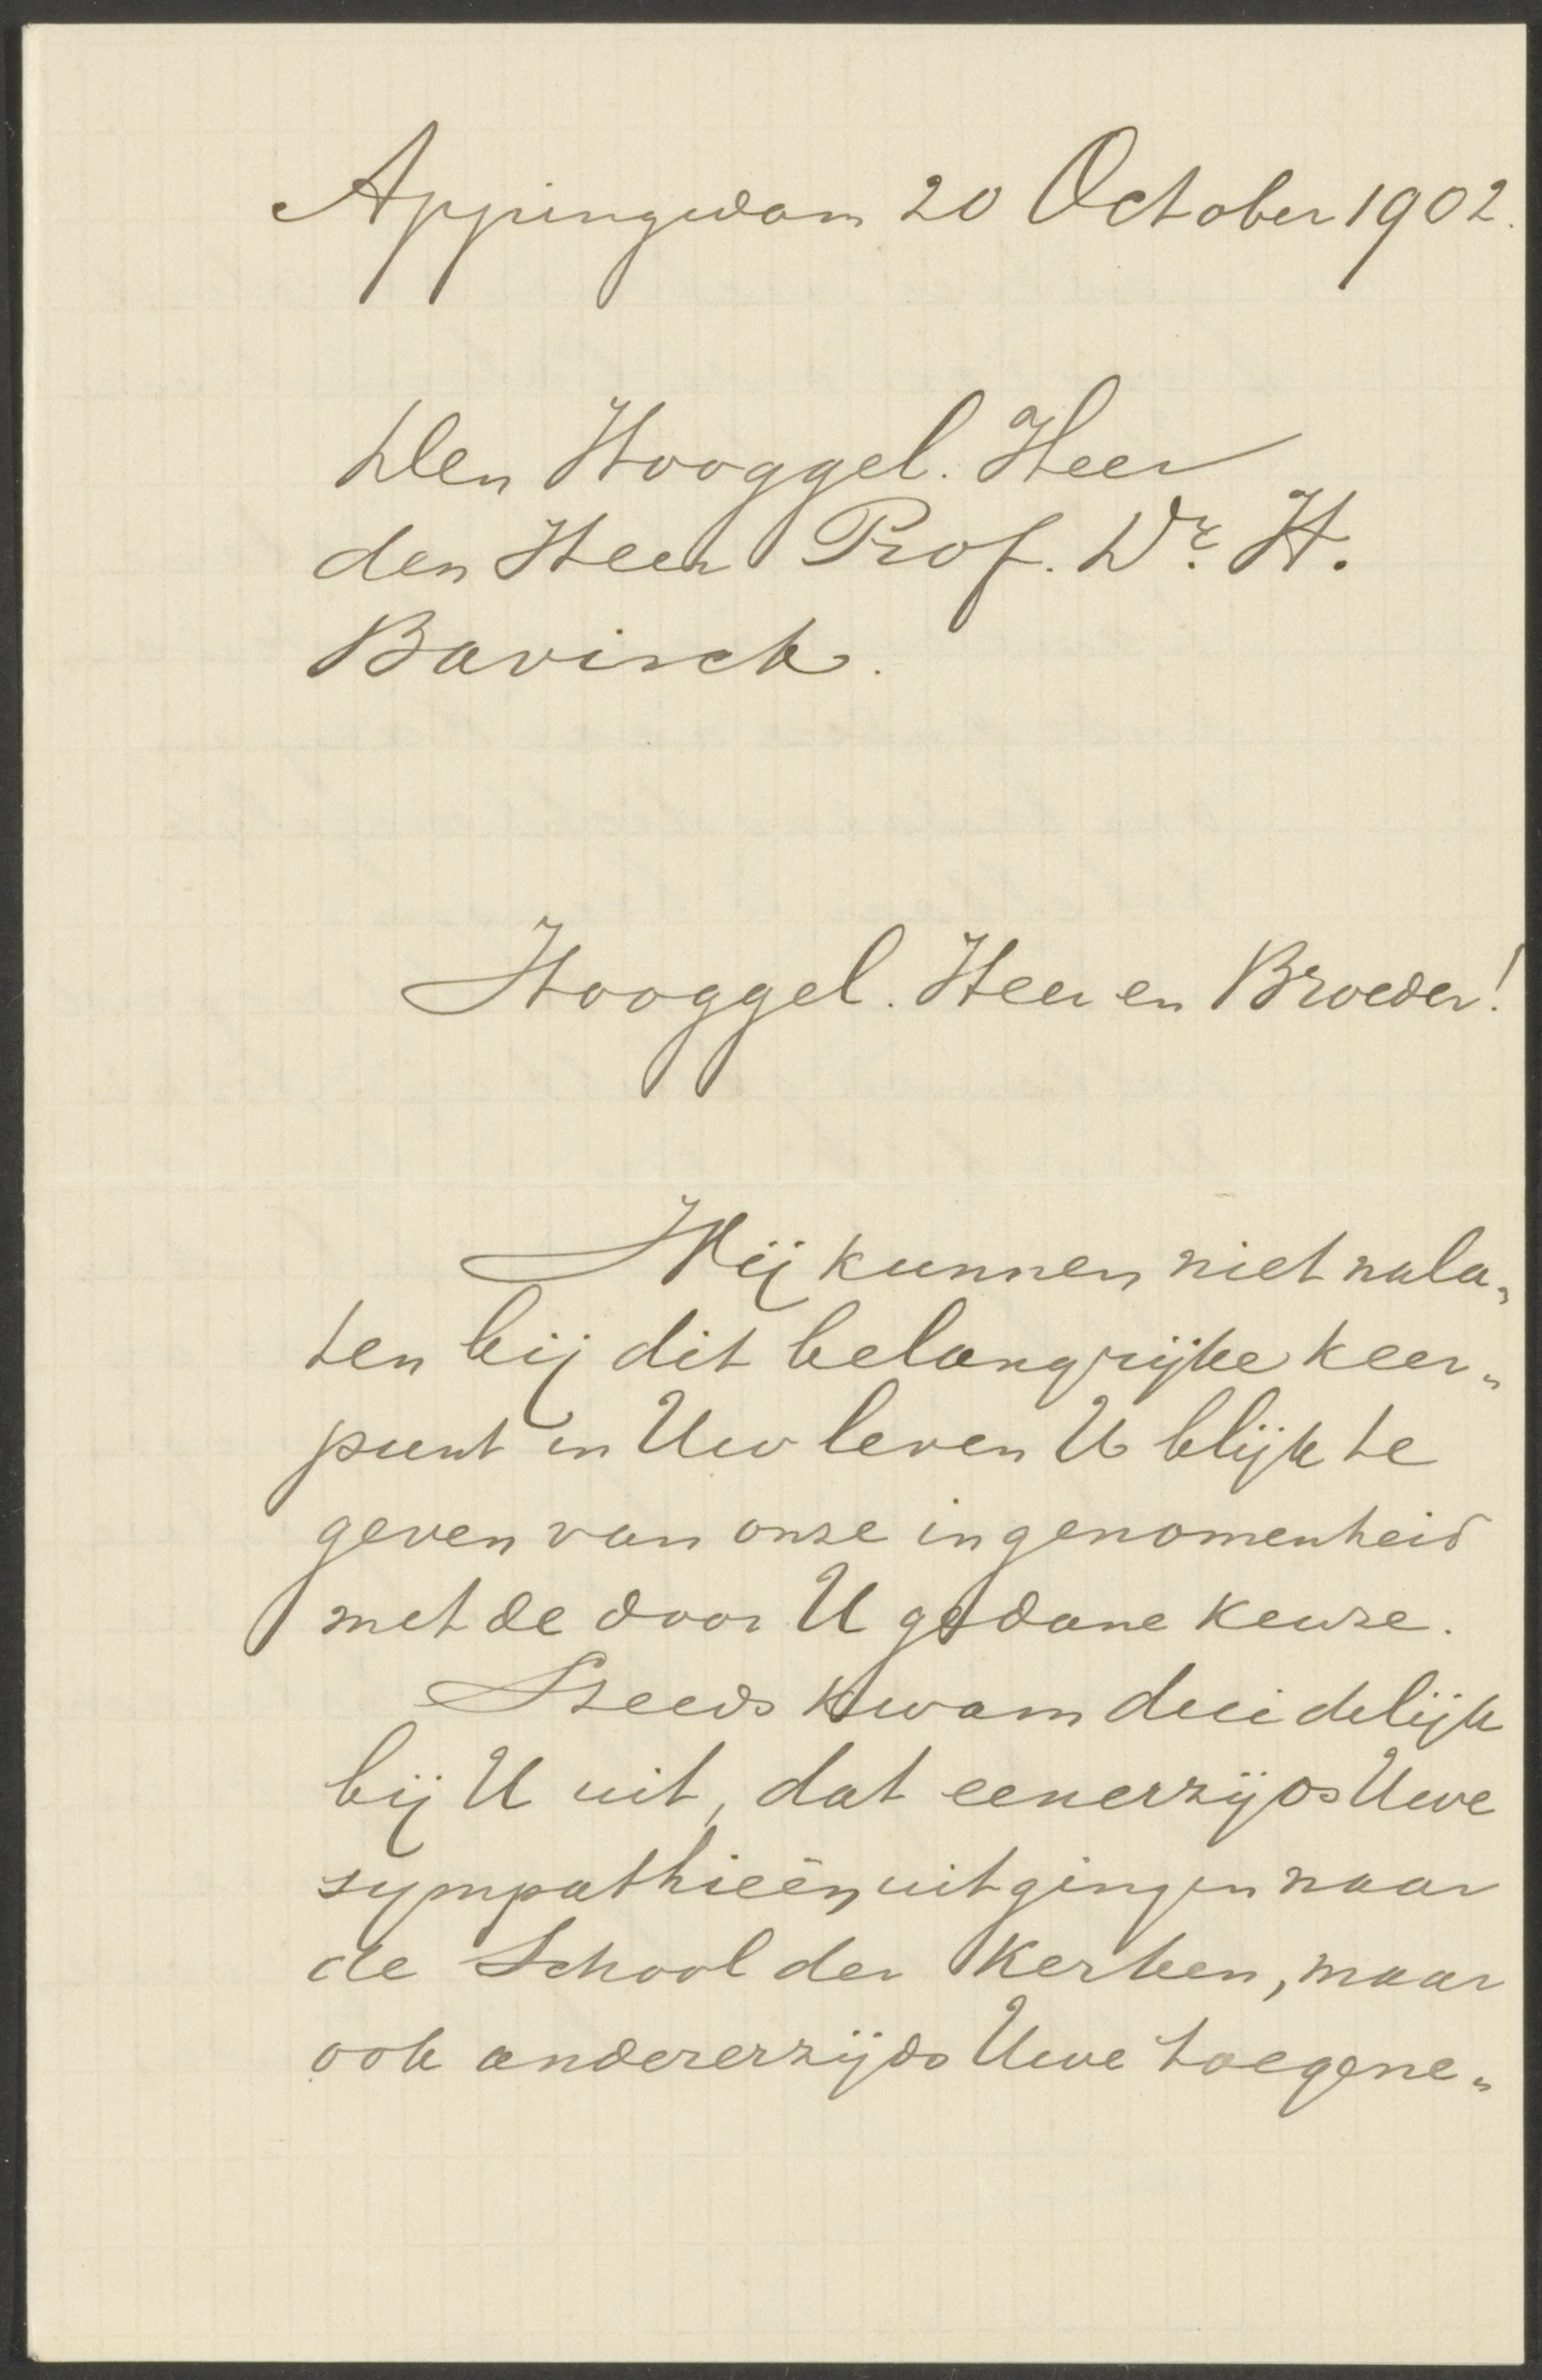 Appingedam 20 October 1902.
Den Hooggel. Heer
den Heer Prof. Dr. H.
Bavinck.
Hooggel. Heer en Broeder!
Wij kunnen niet nala„
ten bij dit belangrijke keer„
punt in Uw leven U blijk te
geven van onze ingenomenheid
met de door U gedane keuze.
Steeds kwam duidelijk
bij U uit, dat eenerzijds Uwe
sympathieën uitgingen naar
de School der Kerken, maar
ook andererzijds Uwe toegene„